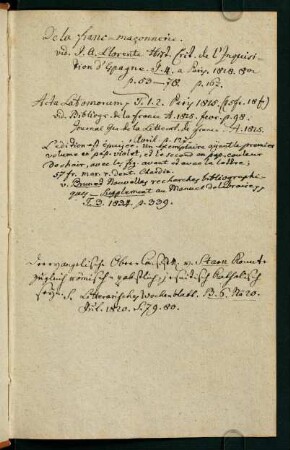 De la franc-maçonnerie.
vid. J. A. Llorente Hist. Crit. de l'Inquisi-
tion d'Espagne T. 4. a Paris 1818. 8vo
p. 53 — 78. p. 162.
Acta Latomorum, T. 1. 2. Paris 1815. p. 5 fr. 18 fr)
vid. Bibliogr. de la france A. 1815. fevr. p. 98.
Journal Gen. de la Litterat. de france. A. 1815.
Avril p. 112.
L'édition est épuisée. Un exemplaire ayant le premier
volume en pap. violet, et le second en pap. couleur
de chair, avec les fig. avant et avec la lettre:
57 fr. mar. r. dent. Chardin.
v. Brunet Nouvelles recherches bibliographi-
ques — Supplement au Manuel du Libraire,
T. I. 1834. p. 339.
Der evangelische Ober v. Starck Konnte
zugleich römisch-pabstlich, jesuitisch katholisch
seyn. S. Literarisches Wochenblatt. B. 6. No 20.
Jul. 1820. S. 79. 80.